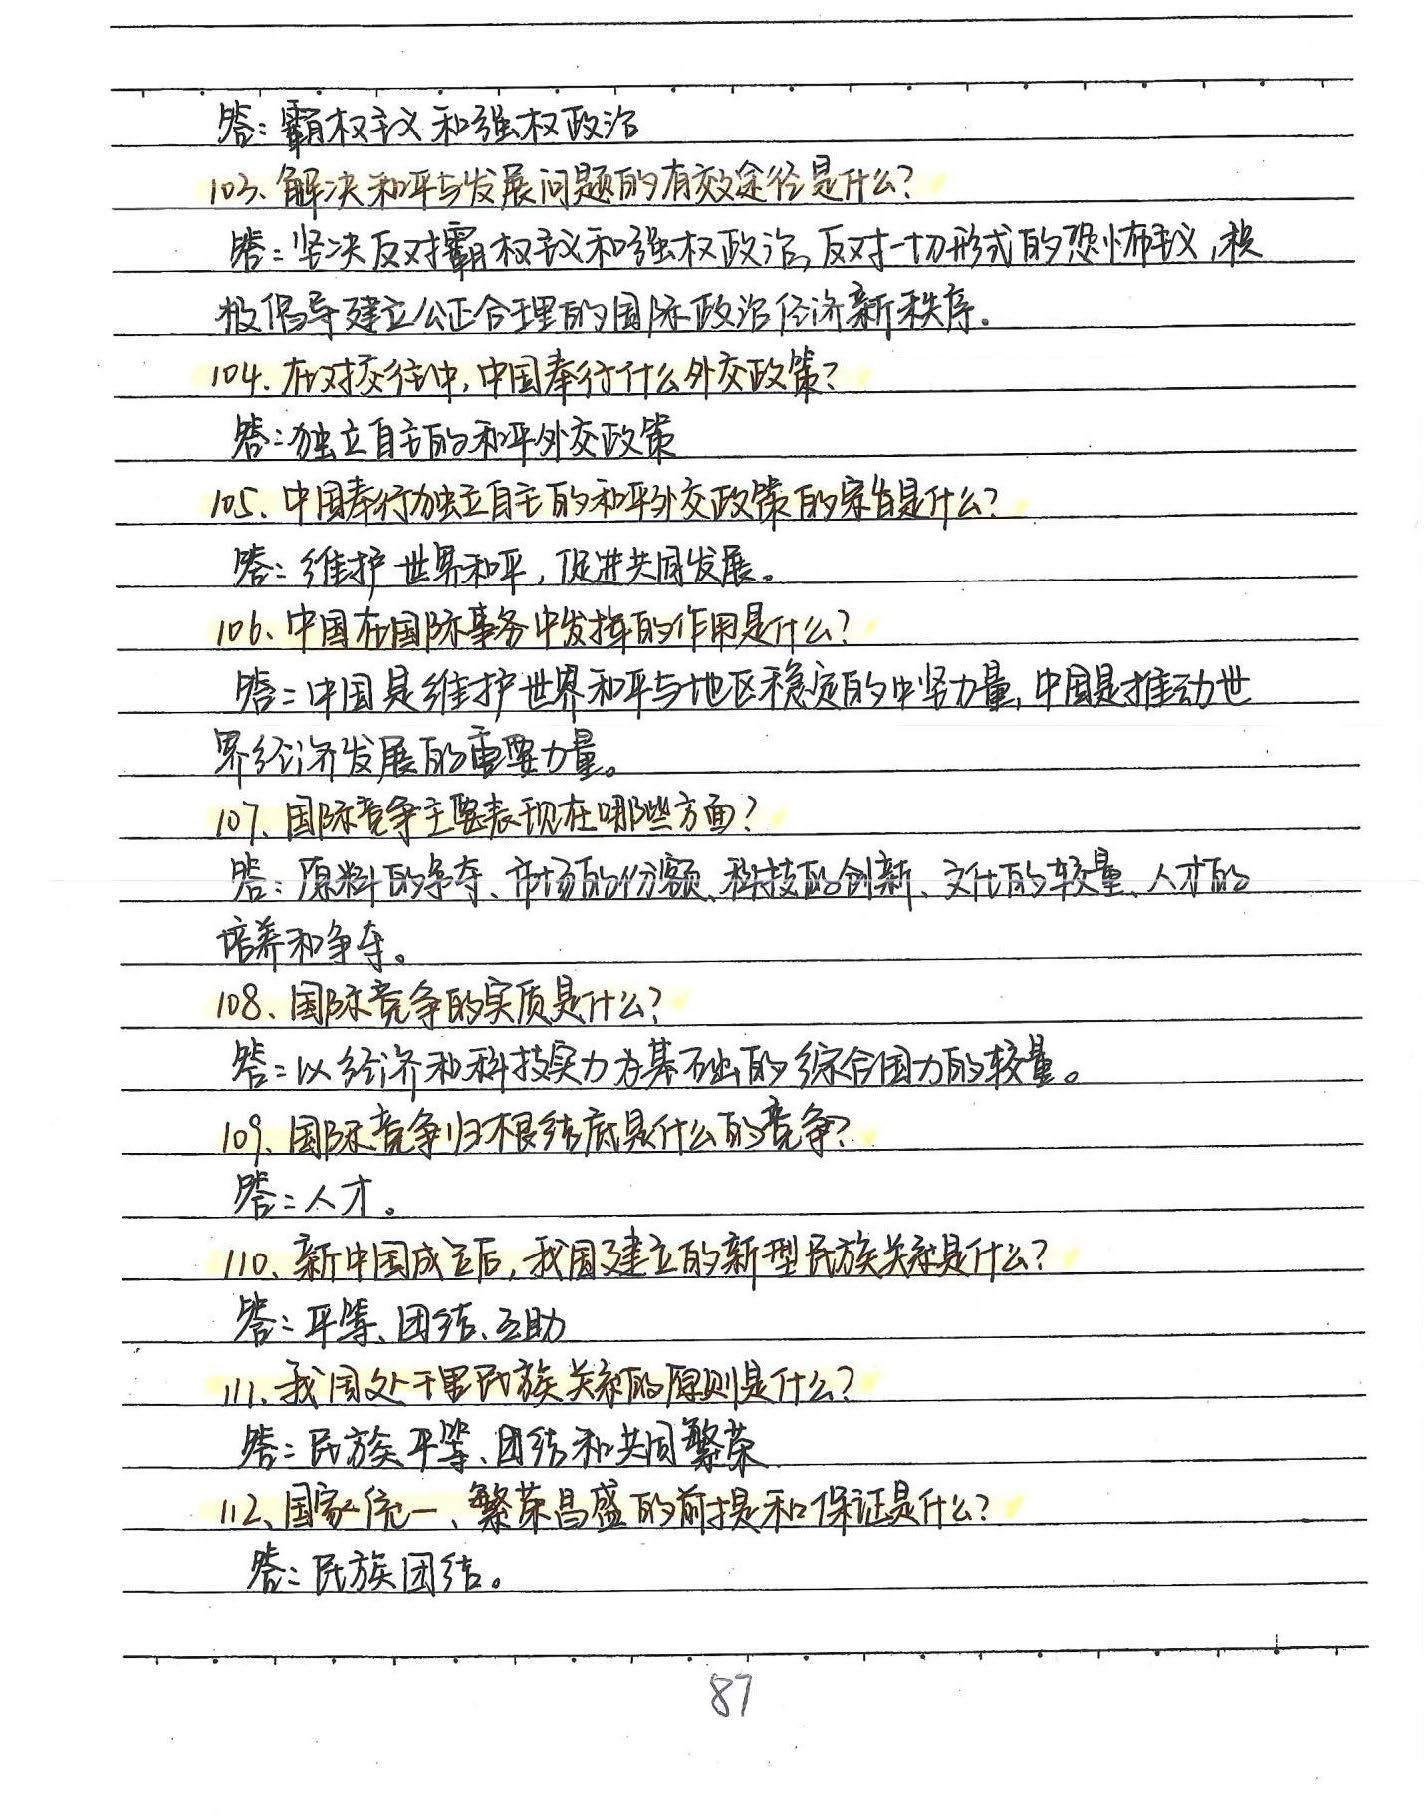 答：霸权主义和强权政治
103、解决和平与发展问题的有效途径是什么？
答：坚决反对霸权主义和强权政治，反对一切形式的恐怖主义，积
极倡导建立公正合理的国际政治经济新秩序。
104、在对交往中，中国奉行什么外交政策？
答：独立自主的和平外交政策
105、中国奉行独立自主的和平外交政策的宗旨是什么？
答：维护世界和平，促进共同发展。
106、中国在国际事务中发挥的作用是什么？
答：中国是维护世界和平与地区稳定的中坚力量，中国是推动世
界经济发展的重要力量。
107、国际竞争主要表现在哪些方面？
答：原料的争夺、市场的份额、科技的创新、文化的较量、人才的
培养和争夺。
108、国际竞争的实质是什么？
答：以经济和科技实力为基础的综合国力的较量。
109、国际竞争归根结底是什么的竞争？
答：人才。
110、新中国成立后，我国建立的新型民族关系是什么？
答：平等、团结、互助
111、我国处理民族关系的原则是什么？
答：民族平等、团结和共同繁荣
112、国家统一、繁荣昌盛的前提和保证是什么？
答：民族团结。
87